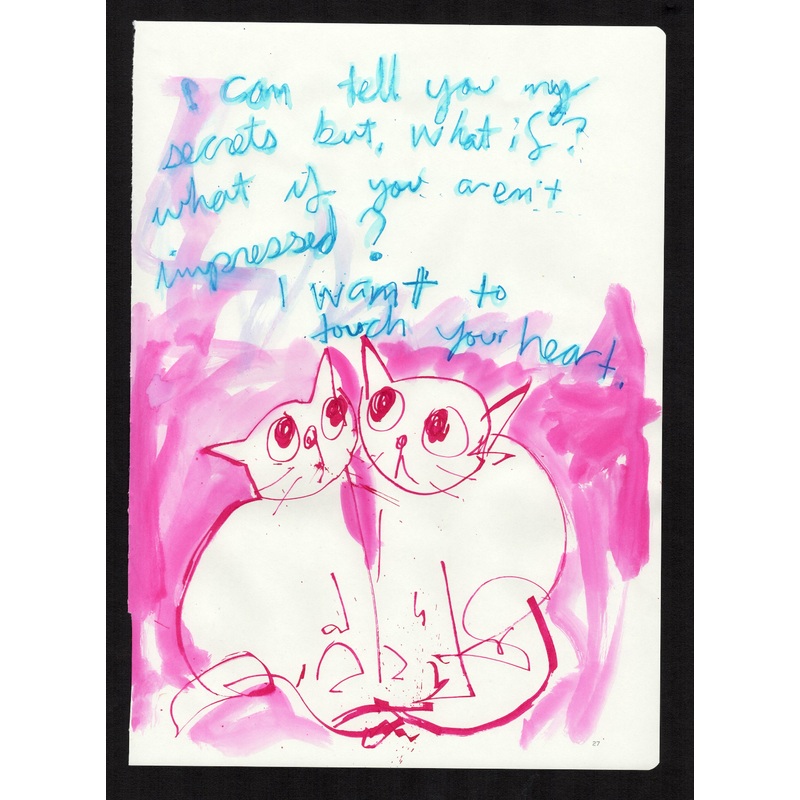 I can tell you my
secrets but, what if?
what if you aren't
impressed?
I want to
touch your heart.
27